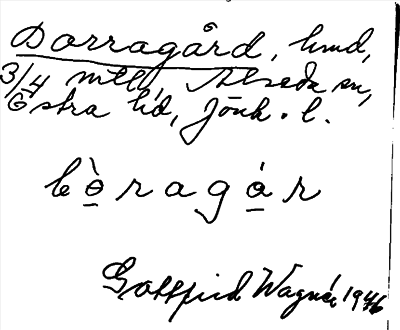 Dorragård, hmd,
3/4 mtl, Alseda sn,
Östra hd, Jönk. l.
bòragár
Gottfrid Wagnér 1946